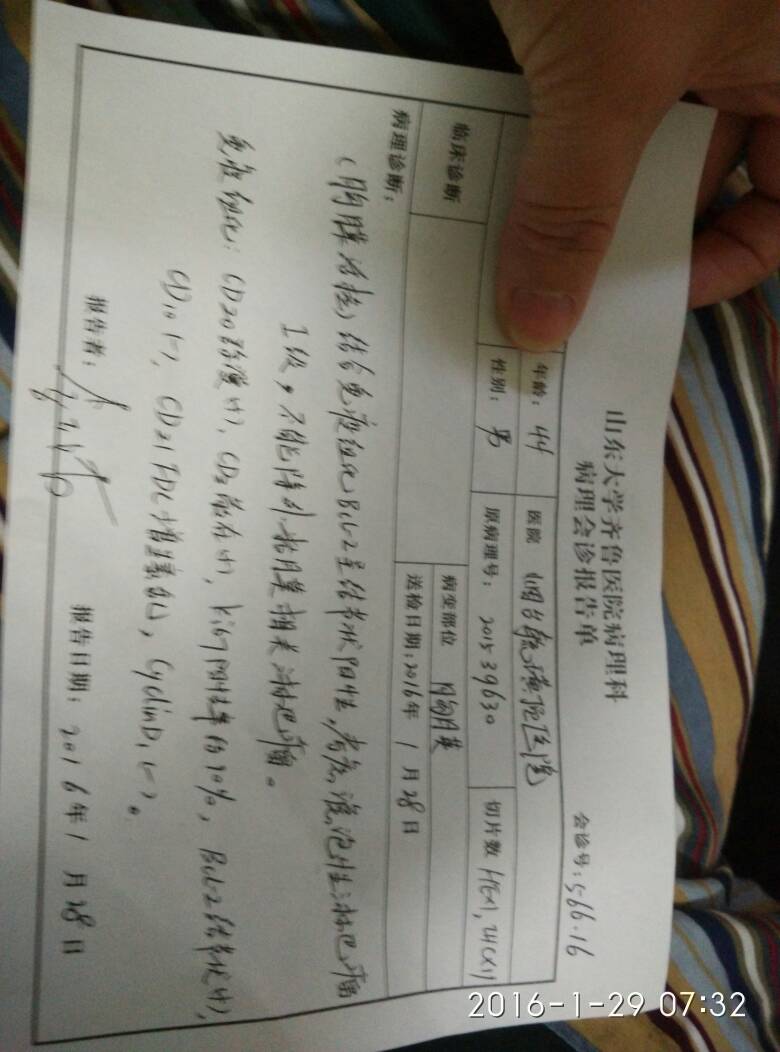 山东大学齐鲁医院病理科
病理会诊报告单
会诊号:S-66·16
年龄:44 医院 烟台毓璜顶医院
性别:男 原病理号:201539630 切片数 HEX1,IHCX11
临床诊断 病变部位 胸膜
送检日期:2016年1月28日
病理诊断:
(胸膜活检)结合免疫组化Bcl-2呈结节状阳性,考虑滤泡性淋巴瘤
I级,不能除外粘膜相关淋巴瘤。
免疫组化:CD20弥漫(+),CD3散在(+),Ki67阳性率约10%,Bcl-2结节状(+),
CD10(-),CD21 FDC增生,CyclinD1(-)。
报告者: 报告日期:2016年1月28日
2016-1-29 07:32